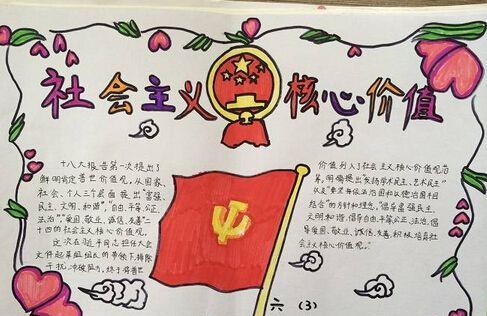 社会主义核心价值
十八大报告第一次提出了
鲜明肯定普世价值观，从国家、
社会、个人三个层面提出"富强、
民主、文明、和谐"，"自由、平等、公正、
法治"，"爱国、敬业、诚信、友善"二
十四的社会主义核心价值观。
这次在近平同志担任大会
文件起草组组长的带领下，排除
干扰，冲破阻力，终于将普世
价值列入了社会主义核心价值观范
畴，明确提出"发扬学术民主、艺术民主"
以及"要坚持依法治国和以德治国相
结合"的方针和理念，"倡导富强、民主、
文明、和谐，倡导自由、平等、公正、法治，倡
导爱国、敬业、诚信、友善，积极培育社
会主义核心价值观。"
六（3）